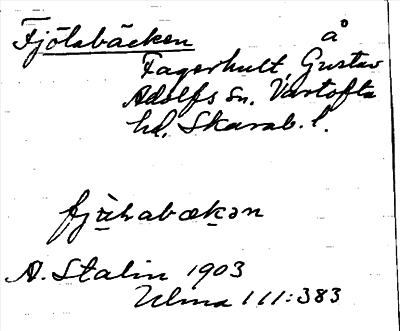 Fjölabäcken å
Fagerhult, Gustav
Adolfs sn. Vartofta
hd, Skarab. l.
A. Stalin 1903
Ulma 111:383